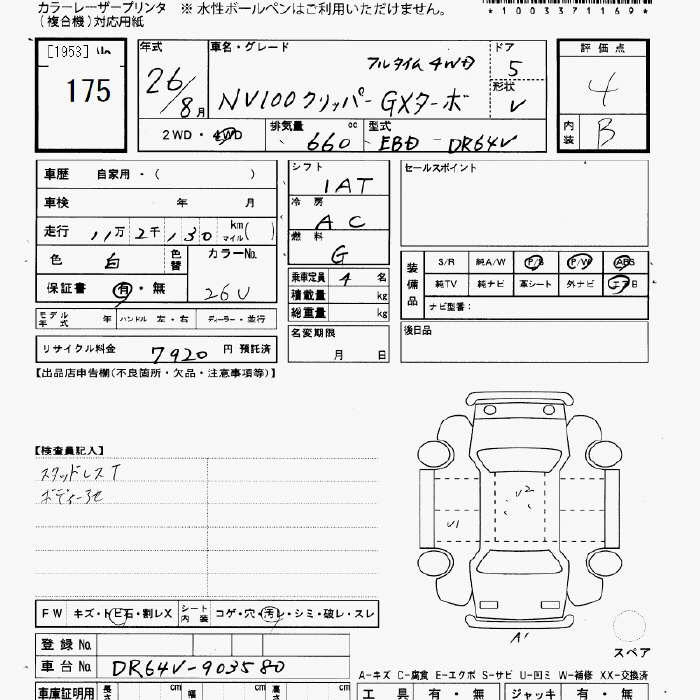 カラーレーザープリンタ ※ 水性ボールペンはご利用いただけません。
(複合機)対応用紙
*1003371169*
[1953]
175
年式
26/8月
車名・グレード
フルタイム4WD
NV100クリッパー GXターボ
ドア
5
形状
V
評価点
4
内装
B
2WD・4WD
排気量 660 cc
型式 EBD-DR64V
車歴 自家用・( )
車検 年 月
走行 11万2千130 km マイル( )
色 白 色替
カラーNo.
26U
保証書 有・無
モデル年式 年 ハンドル 左・右 ディーラー・並行
リサイクル料金 7920 円 預託済
シフト
IAT
冷房
AC
燃料
G
乗車定員 4 名
積載量 kg
総重量 kg
名変期限
月 日
セールスポイント
装備品
S/R 純A/W P/S P/W ABS
純TV 純ナビ 革シート 外ナビ エアB
ナビ型番：
後日品
【出品店申告欄(不良箇所・欠品・注意事項等)】
【検査員記入】
スタッドレスT
V2
V1
A1
スペア
FW キズ・トビ石・割レX シート内装 コゲ・穴・汚レ・シミ・破レ・スレ
登録No.
車台No. DR64V-903580
A-キズ C-腐食 E-エクボ S-サビ U-凹ミ W-補修 XX-交換済
車庫証明用 長さ cm 幅 cm 高 cm
工具 有・無 ジャッキ 有・無